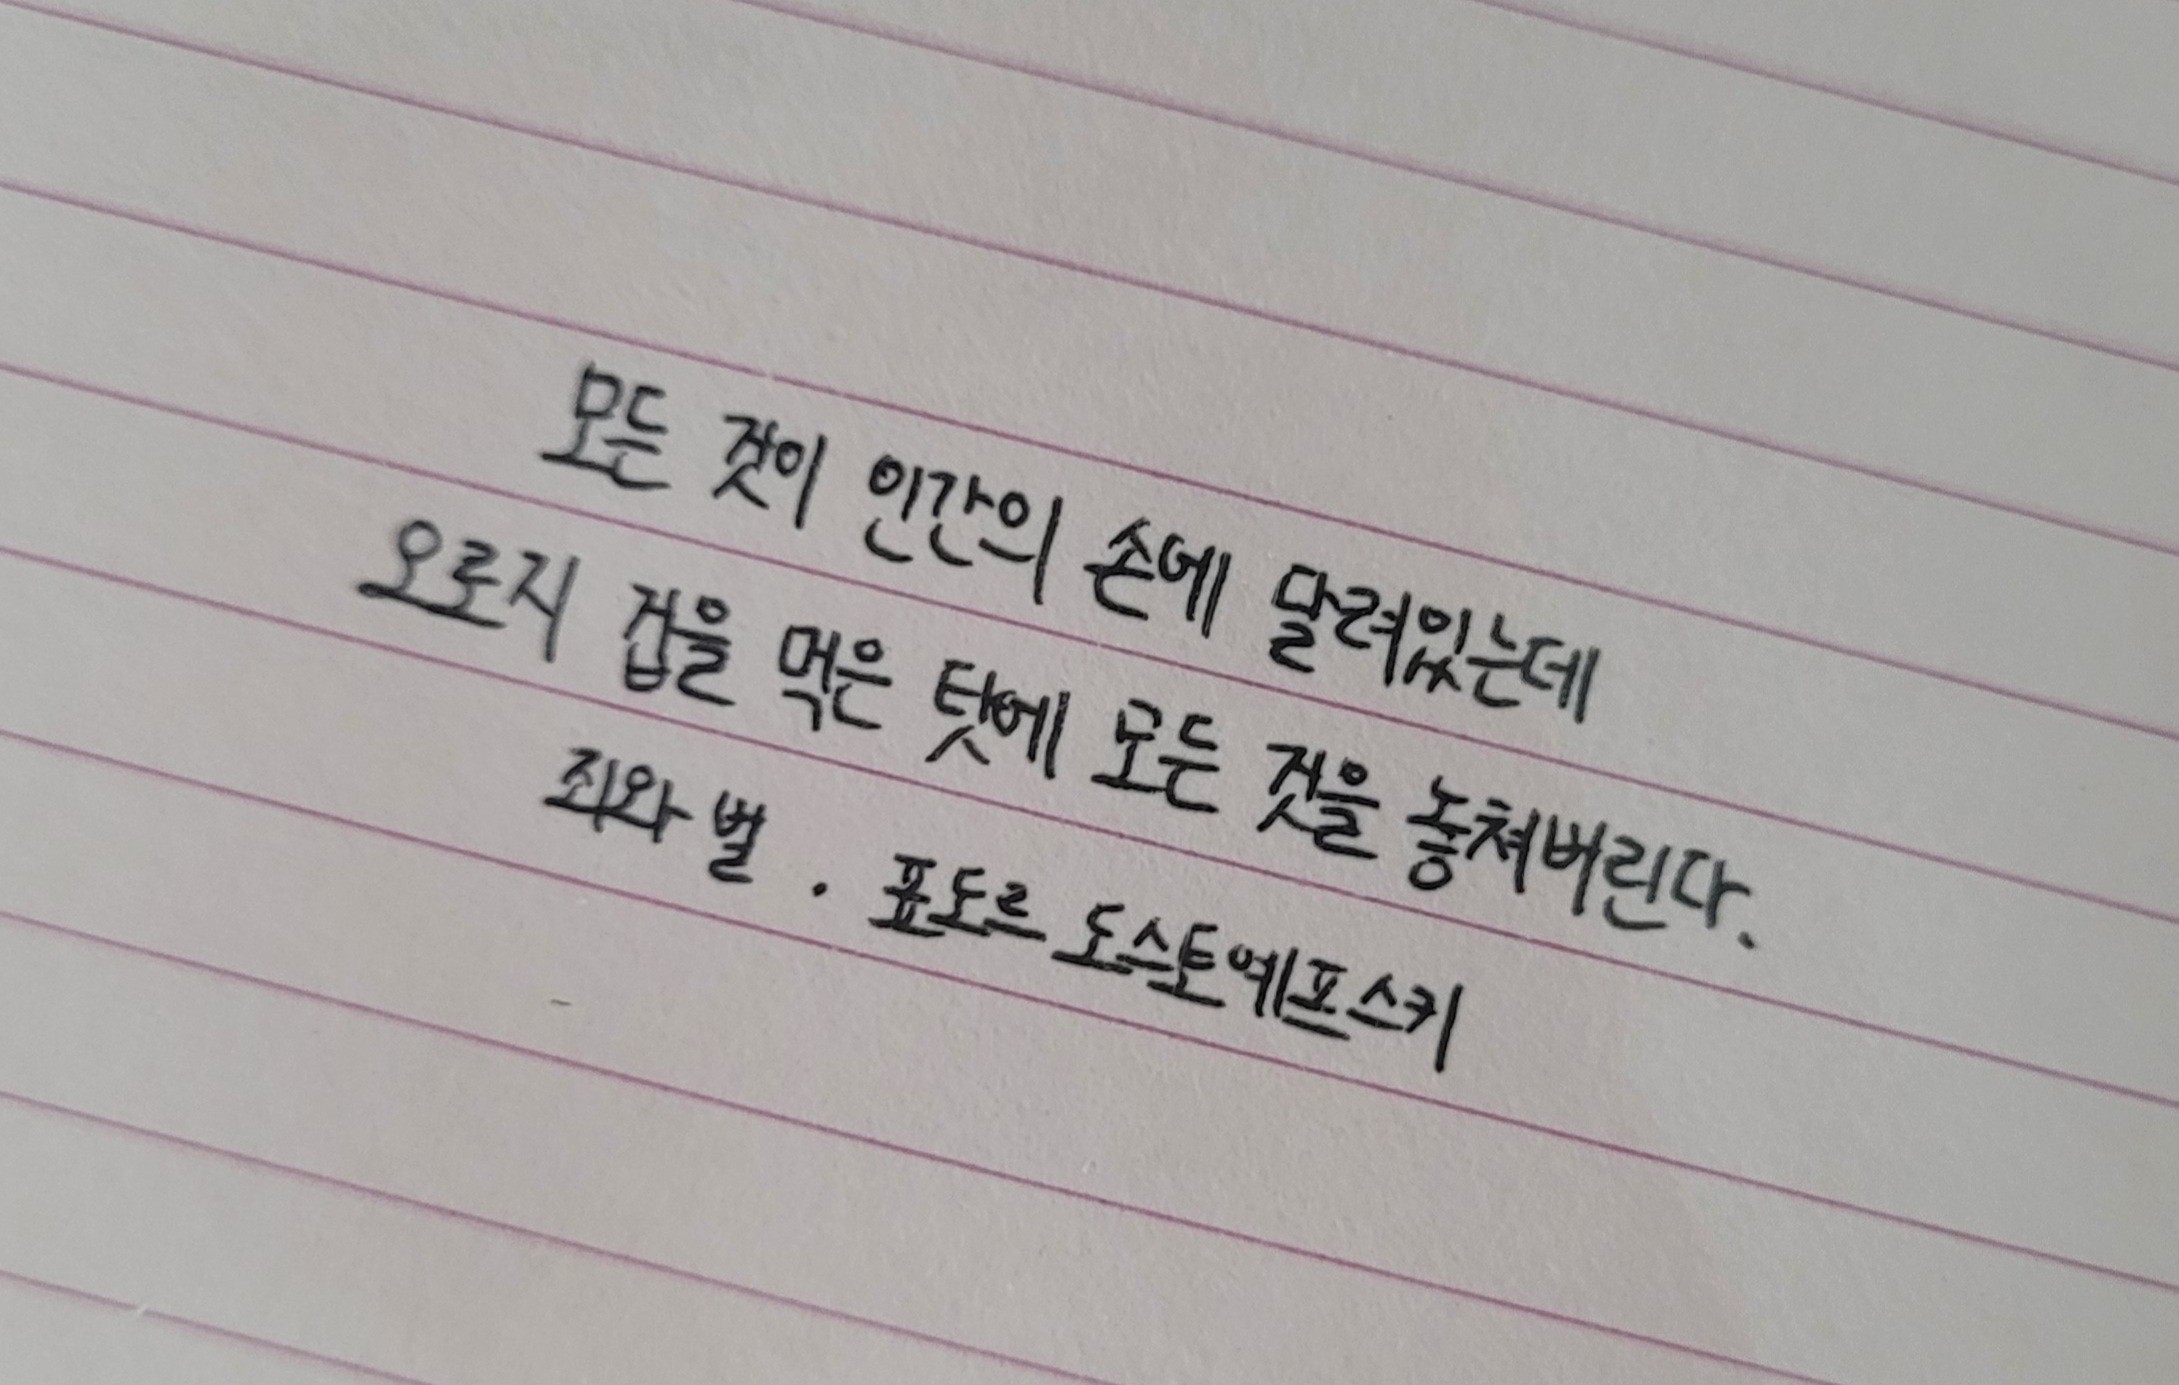 모든 것이 인간의 손에 달려있는데
오로지 겁을 먹은 탓에 모든 것을 놓쳐버린다.
죄와 벌 . 표도르 도스토예프스키